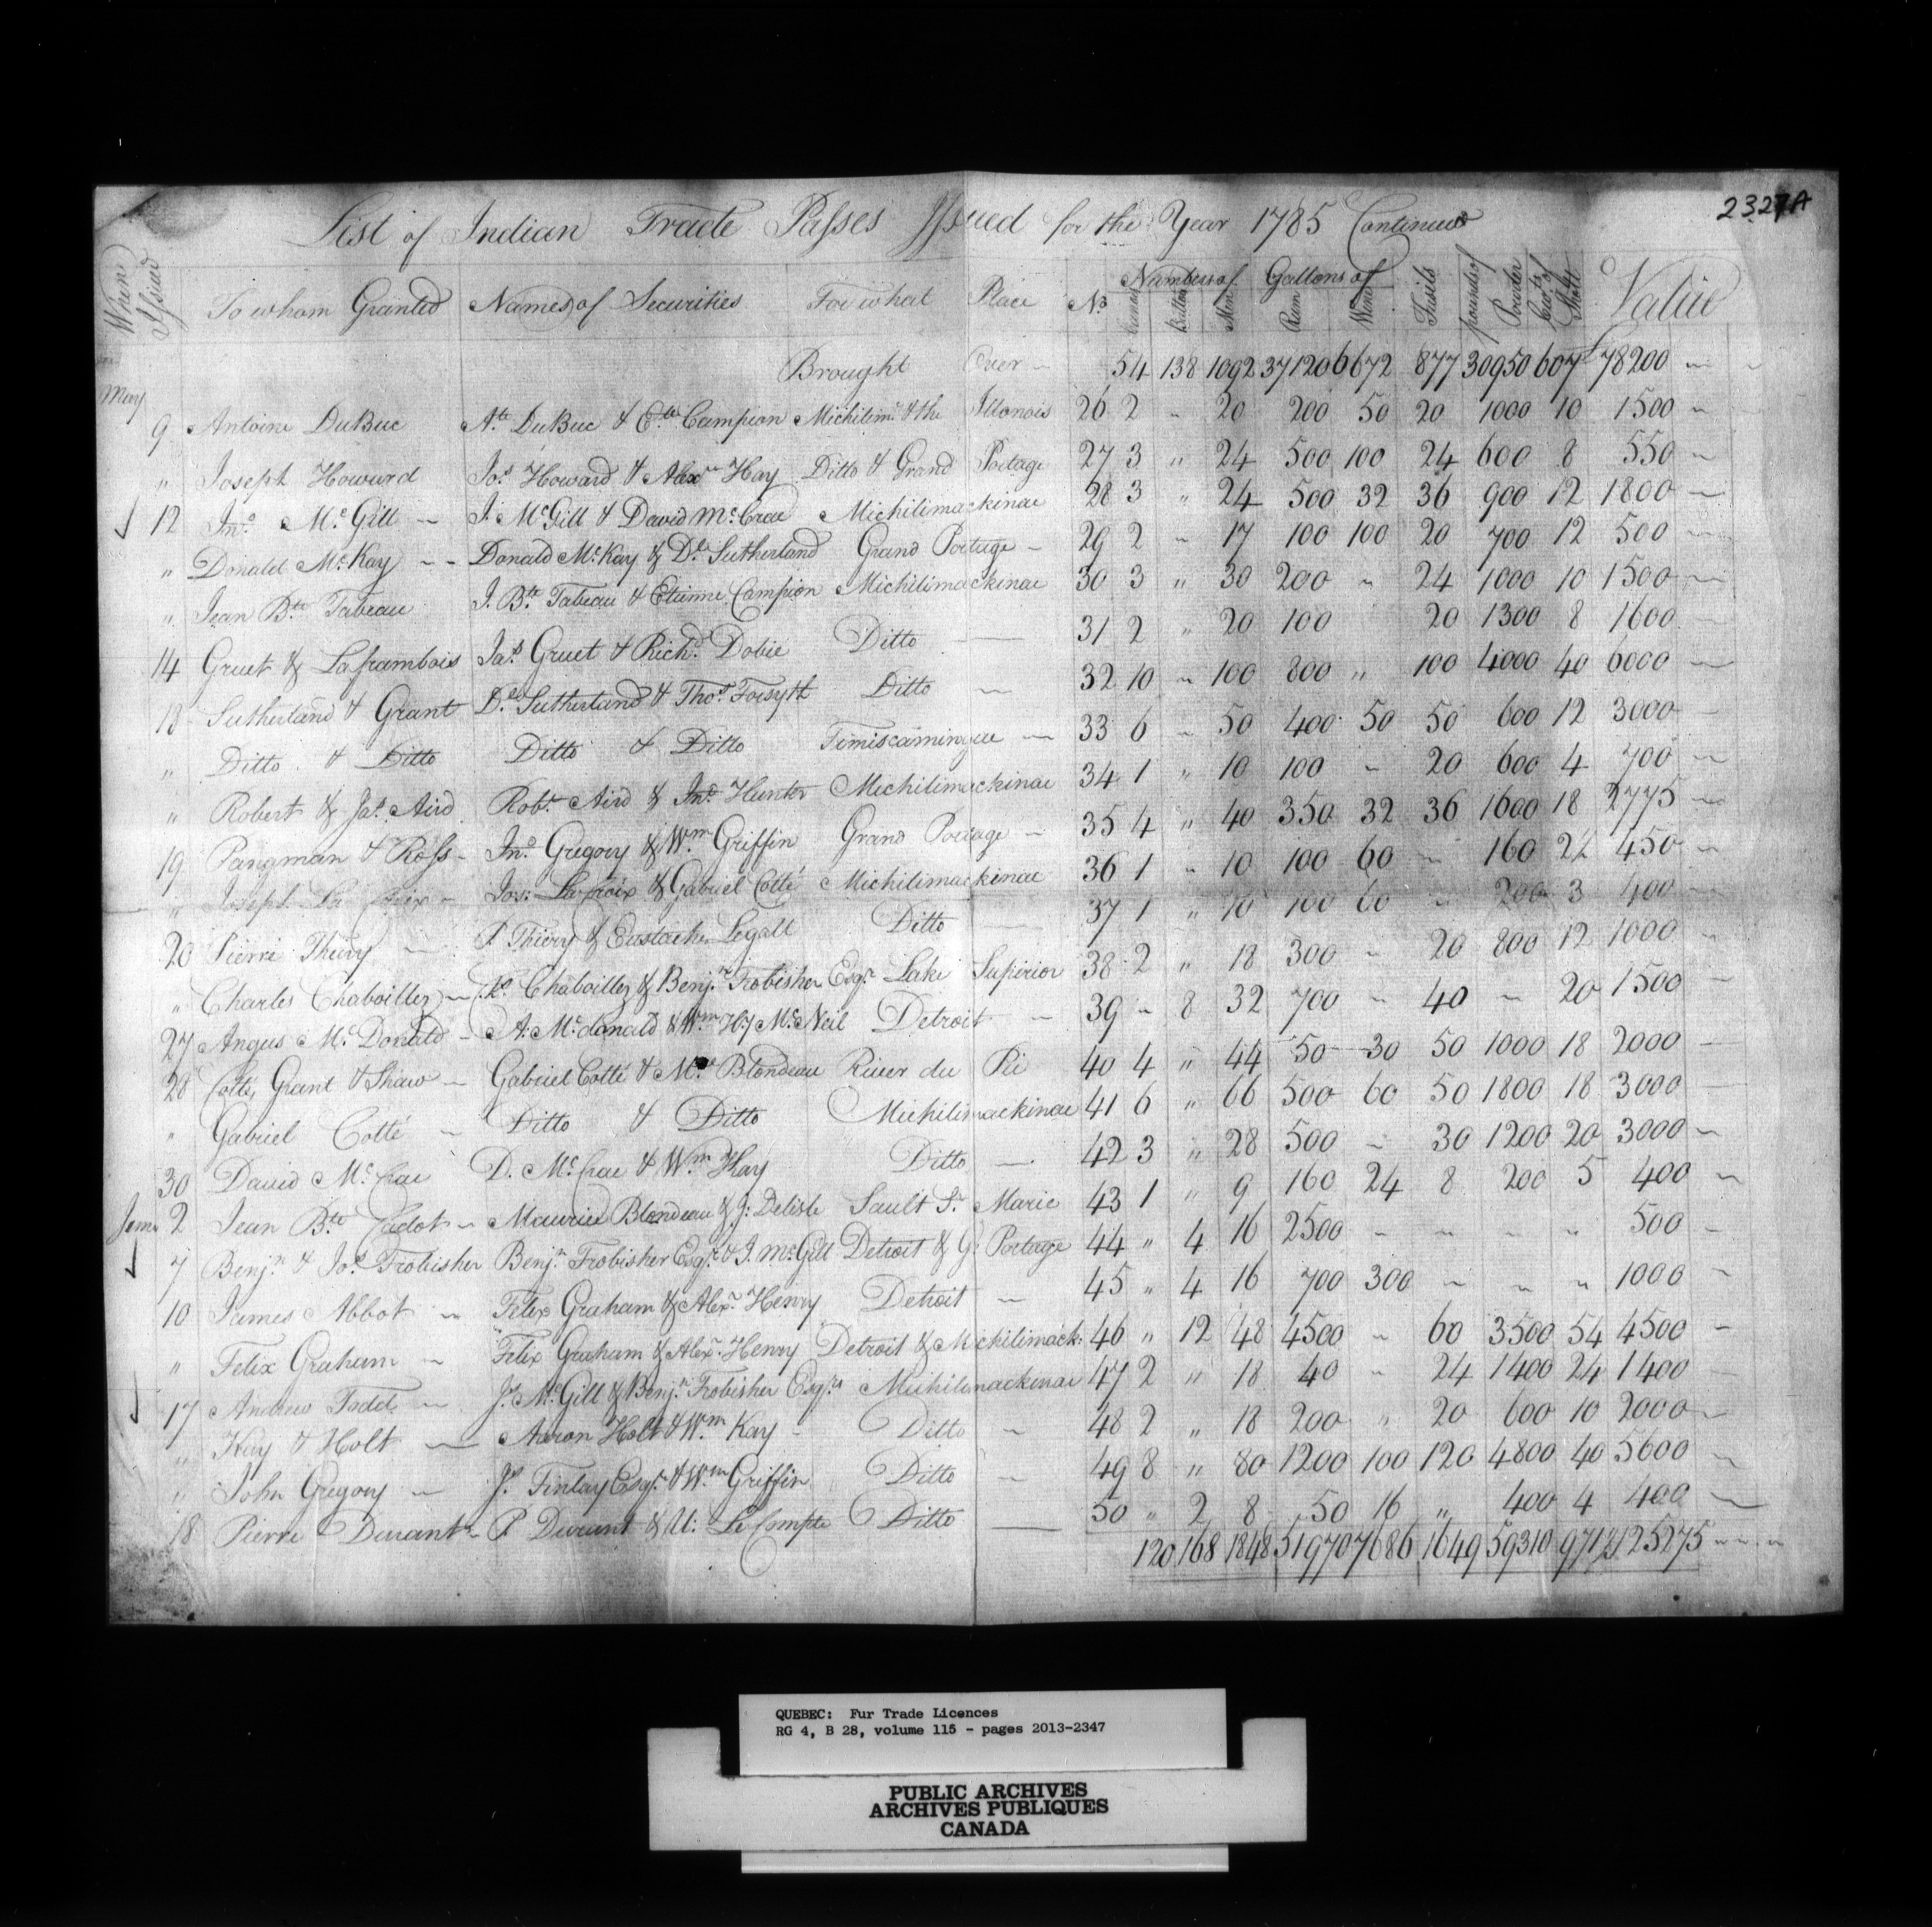 2327A
List of Indian Trade Passes Issued for the Year 1785 Continued
When Issued To whom Granted Names of Securities For what Place No. Numbers of Canoes Battoes Men Gallons of Rum Wine Fusils pounds of Powder Cwts. of Shott Value
Brought Over 54 138 1092 37120 6672 877 30950 607 £78200
May
9 Antoine DuBuc At. DuBuc & Ette. Campion Michilim: & the Illonois 26 2 " 20 200 50 20 1000 10 1500
" Joseph Howard Jos. Howard & Alexr. Hay Ditto & Grand Portage 27 3 " 24 500 100 24 600 8 550
12 Jno. McGill J. McGill & David McCrae Michilimackinac 28 3 " 24 500 32 36 900 12 1800
" Donald McKay Donald McKay & D. Sutherland Grand Portage 29 2 " 17 100 100 20 700 12 500
" Jean Bte. Tabeau J. Bte. Tabeau & Etienne Campion Michilimackinac 30 3 " 30 200 " 24 1000 10 1500
14 Gruet & Laframbois Jas. Gruet & Richd. Dobie Ditto 31 2 " 20 100 20 1300 8 1600
18 Sutherland & Grant D. Sutherland & Thos. Forsyth Ditto 32 10 " 100 800 " 100 4000 40 6000
" Ditto & Ditto Ditto & Ditto Timiscamingue 33 6 " 50 400 50 50 600 12 3000
" Robert & Jas. Aird Robt. Aird & Jno. Hunter Michilimackinac 34 1 " 10 100 " 20 600 4 700
19 Pangman & Ross Jno. Gregory & Wm. Griffin Grand Portage 35 4 " 40 350 32 36 1600 18 2775
" Joseph La Croix Jos: LaCroix & Gabriel Cotté Michilimackinac 36 1 " 10 100 60 " 160 2½ 450
20 Pierre Thiery P. Thiery & Eustache Legall Ditto 37 1 " 10 100 60 " 200 3 400
" Charles Chaboillez Chaboillez & Benjn. Frobisher Esqr. Lake Superior 38 2 " 18 300 " 20 800 12 1000
27 Angus McDonald A: Mcdonald & Wm. Hy McNeil Detroit 39 " 8 32 700 " 40 " 20 1500
28 Cotté, Grant & Shaw Gabriel Cotté & Blondeau River du Pic 40 4 " 44 50 30 50 1000 18 2000
" Gabriel Cotté Ditto & Ditto Michilimackinac 41 6 " 66 500 60 50 1800 18 3000
30 David McCrae D. McCrae & Wm. Kay Ditto 42 3 " 28 500 " 30 1200 20 3000
June 2 Jean Bte. Cadot Maurice Blondeau & J: Delisle Sault St. Marie 43 1 " 9 160 24 8 200 5 400
7 Benjn. & Jos. Frobisher Benjn. Frobisher Esqr. & J. McGill Detroit & G: Portage 44 " 4 16 2500 " " " " 500
10 James Abbot Felix Graham & Alexr. Henry Detroit 45 " 4 16 700 300 " " " 1000
" Felix Graham Felix Graham & Alexr. Henry Detroit & Michilimack: 46 " 12 48 4500 " 60 3500 54 4500
17 Andrew Todd Js. McGill & Benjn. Frobisher Esqrs. Michilimackinac 47 2 " 18 40 " 24 1400 24 1400
" Kay & Holt Aaron Holt & Wm. Kay Ditto 48 2 " 18 200 " 20 600 10 2000
" John Gregory Js. Finlay Esqr. & Wm. Griffin Ditto 49 8 " 80 1200 100 120 4800 40 5600
18 Pierre Durant P. Durant & U: LeCompte Ditto 50 " 2 8 50 16 " 400 4 400
120 168 1848 51970 7686 1649 59310 971½ 125275
QUEBEC: Fur Trade Licences
RG 4, B 28, volume 115 - pages 2013-2347
PUBLIC ARCHIVES
ARCHIVES PUBLIQUES
CANADA